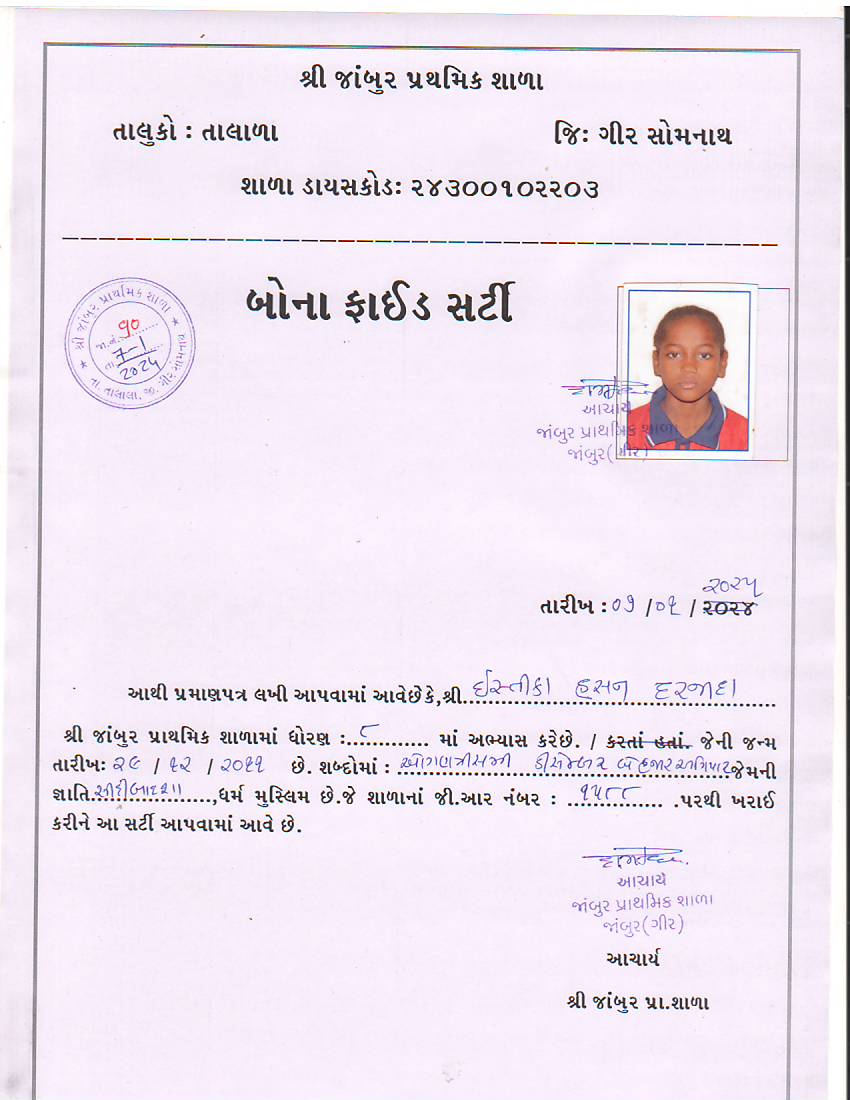 શ્રી જાંબુર પ્રથમિક શાળા
તાલુકો : તાલાળા જિ: ગીર સોમનાથ
શાળા ડાયસકોડ: ૨૪૩૦૦૧૦૨૨૦૩
બોના ફાઈડ સર્ટી
★ શ્રી જાંબુર પ્રાથમિક શાળા ★
જા.નં. ૧૦
તા. 7-1
2024
તા. તાલાલા. જી. ગીર સોમનાથ
આચાર્ય
જાંબુર પ્રાથમિક શાળા
જાંબુર(ગીર)
૨૦૨૫
તારીખ : ૦૭ / ૦૧ / ૨૦૨૪
આથી પ્રમાણપત્ર લખી આપવામાં આવેછેકે,શ્રી ઈસ્તીકા હસન દરજાદા
શ્રી જાંબુર પ્રાથમિક શાળામાં ધોરણ : ૮ માં અભ્યાસ કરેછે. / કરતાં હતાં. જેની જન્મ
તારીખ: ૨૯ / ૧૨ / ૨૦૧૧ છે. શબ્દોમાં : ઓગણત્રીસમી ડીસેમ્બર બે હજાર અગિયાર જેમની
જ્ઞાતિ સીદીબાદશા ,ધર્મ મુસ્લિમ છે.જે શાળાનાં જી.આર નંબર : ૧૫૮૮ .પરથી ખરાઈ
કરીને આ સર્ટી આપવામાં આવે છે.
આચાર્ય
જાંબુર પ્રાથમિક શાળા
જાંબુર(ગીર)
આચાર્ય
શ્રી જાંબુર પ્રા.શાળા